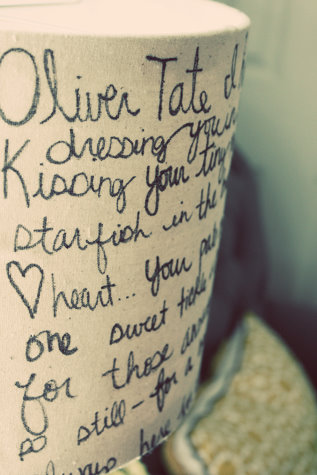 Oliver Tate I
dressing your
Kissing your tiny
starfish in the
♡ heart... your
one sweet
for those
so still - for a
always here